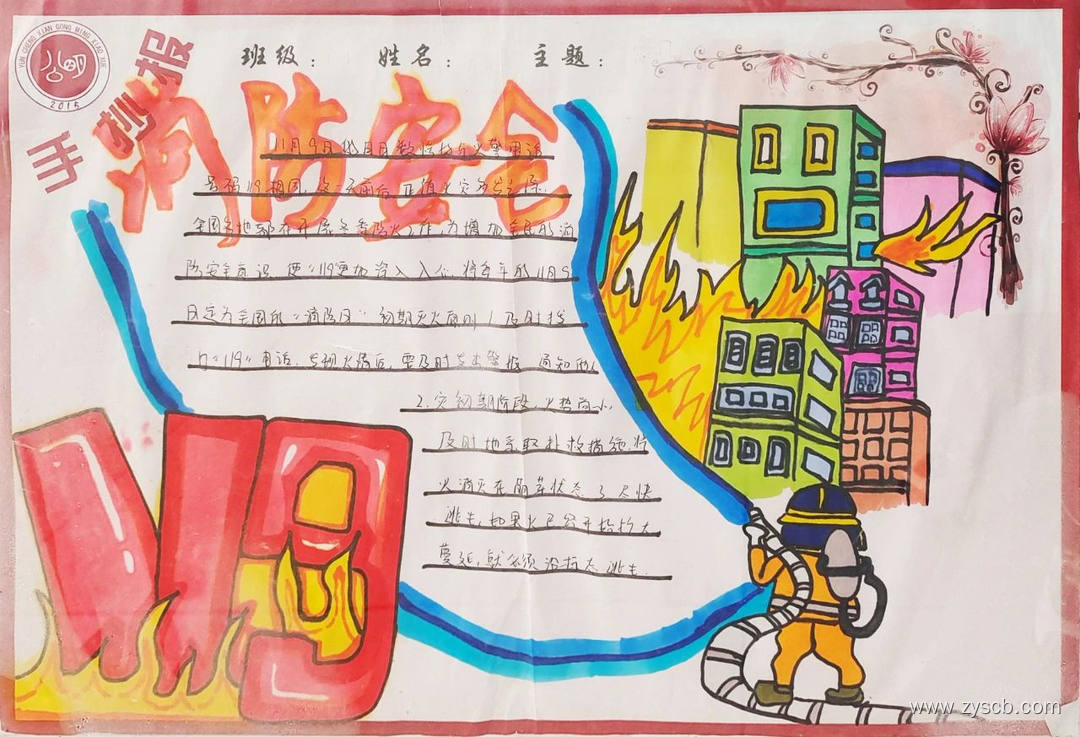 YUN CHENG XIAN GONG MING XIAO XUE
公明
2015
手抄报
班级： 姓名： 主题：
消防安全
11月9日的月日数恰好与火警电话
号码119相同，这一天前后，正值火灾多发之际，
全国各地都在开展冬季防火工作，为增加全民的消
防安全意识，使"119"更加深入人心，将每年的11月9
日定为全国的"消防日" 初期灭火原则 1 及时拨
打"119"电话，发现火情后，要及时发出警报，通知
2.灾初期阶段，火势尚小，
及时地采取扑救措施，将
火消灭在萌芽状态 3 尽快
逃生，如果火已经开始扩大
蔓延，就必须 逃生
119
www.zyscb.com